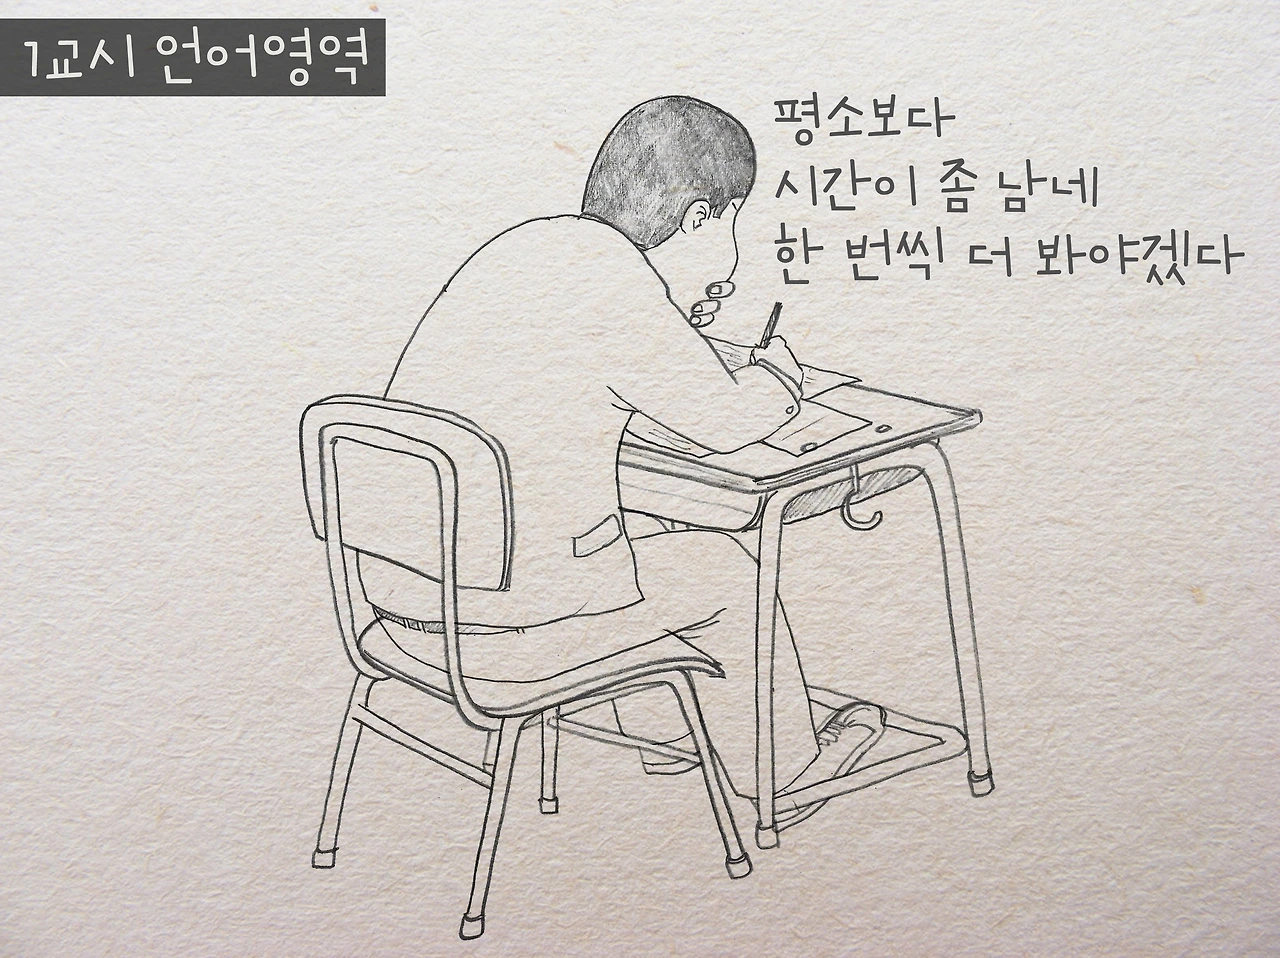 1교시 언어영역
평소보다
시간이 좀 남네
한 번씩 더 봐야겠다